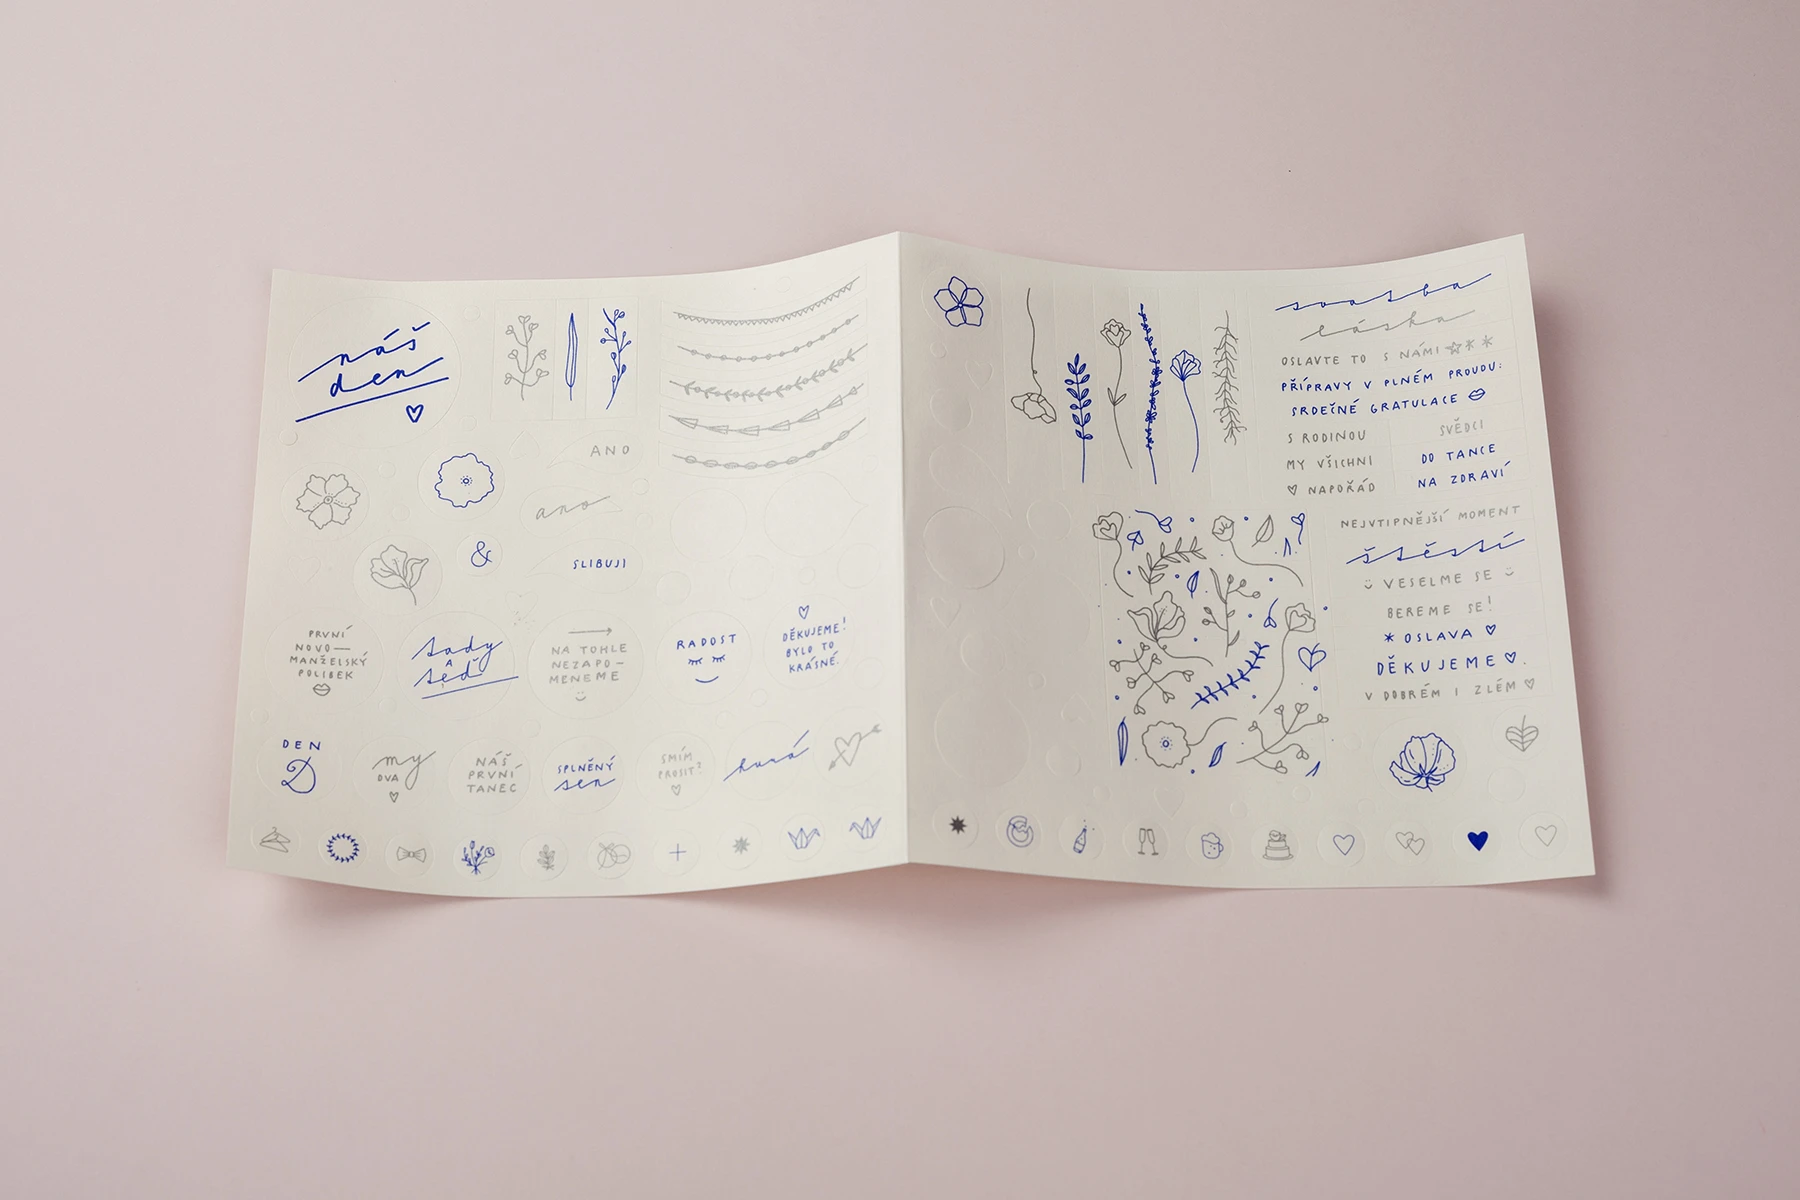 náš
den
ANO
ano
&
SLIBUJI
PRVNÍ
NOVO—
MANŽELSKÝ
POLIBEK
tady
A
teď
NA TOHLE
NEZAPO—
MENEME
RADOST
DĚKUJEME!
BYLO TO
KRÁSNÉ.
DEN
D
my
DVA
NÁŠ
PRVNÍ
TANEC
SPLNĚNÝ
sen
SMÍM
PROSIT?
hurá
svatba
láska
OSLAVTE TO S NÁMI
PŘÍPRAVY V PLNÉM PROUDU:
SRDEČNÉ GRATULACE
S RODINOU
SVĚDCI
MY VŠICHNI
DO TANCE
NAPOŘÁD
NA ZDRAVÍ
NEJVTIPNĚJŠÍ MOMENT
štěstí
VESELME SE
BEREME SE!
* OSLAVA
DĚKUJEME
V DOBRÉM I ZLÉM